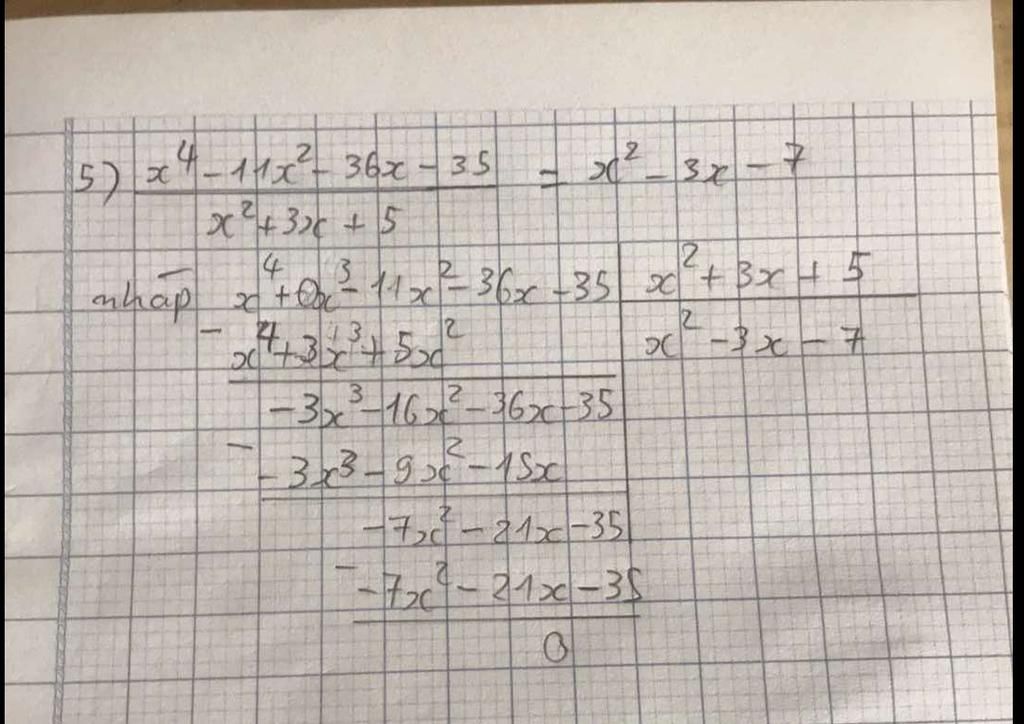 5) x⁴ - 11x² - 36x - 35 = x² - 3x - 7
x² + 3x + 5
nhāp x⁴ + 0x³ - 11x² - 36x - 35 | x² + 3x + 5
- x⁴ + 3x³ + 5x² | x² - 3x - 7
-3x³ - 16x² - 36x - 35
- -3x³ - 9x² - 15x
-7x² - 21x - 35
- -7x² - 21x - 35
0